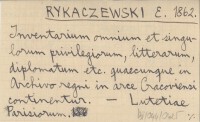 RYKACZEWSKI E. 1862.
Inventarium omnium et singu-
lorum privilegiorum, litterarum,
diplomatum etc. quaecunque in
Archivo regni in arce Cracoviensi
continentur. — Lutetiae
Parisiorum.